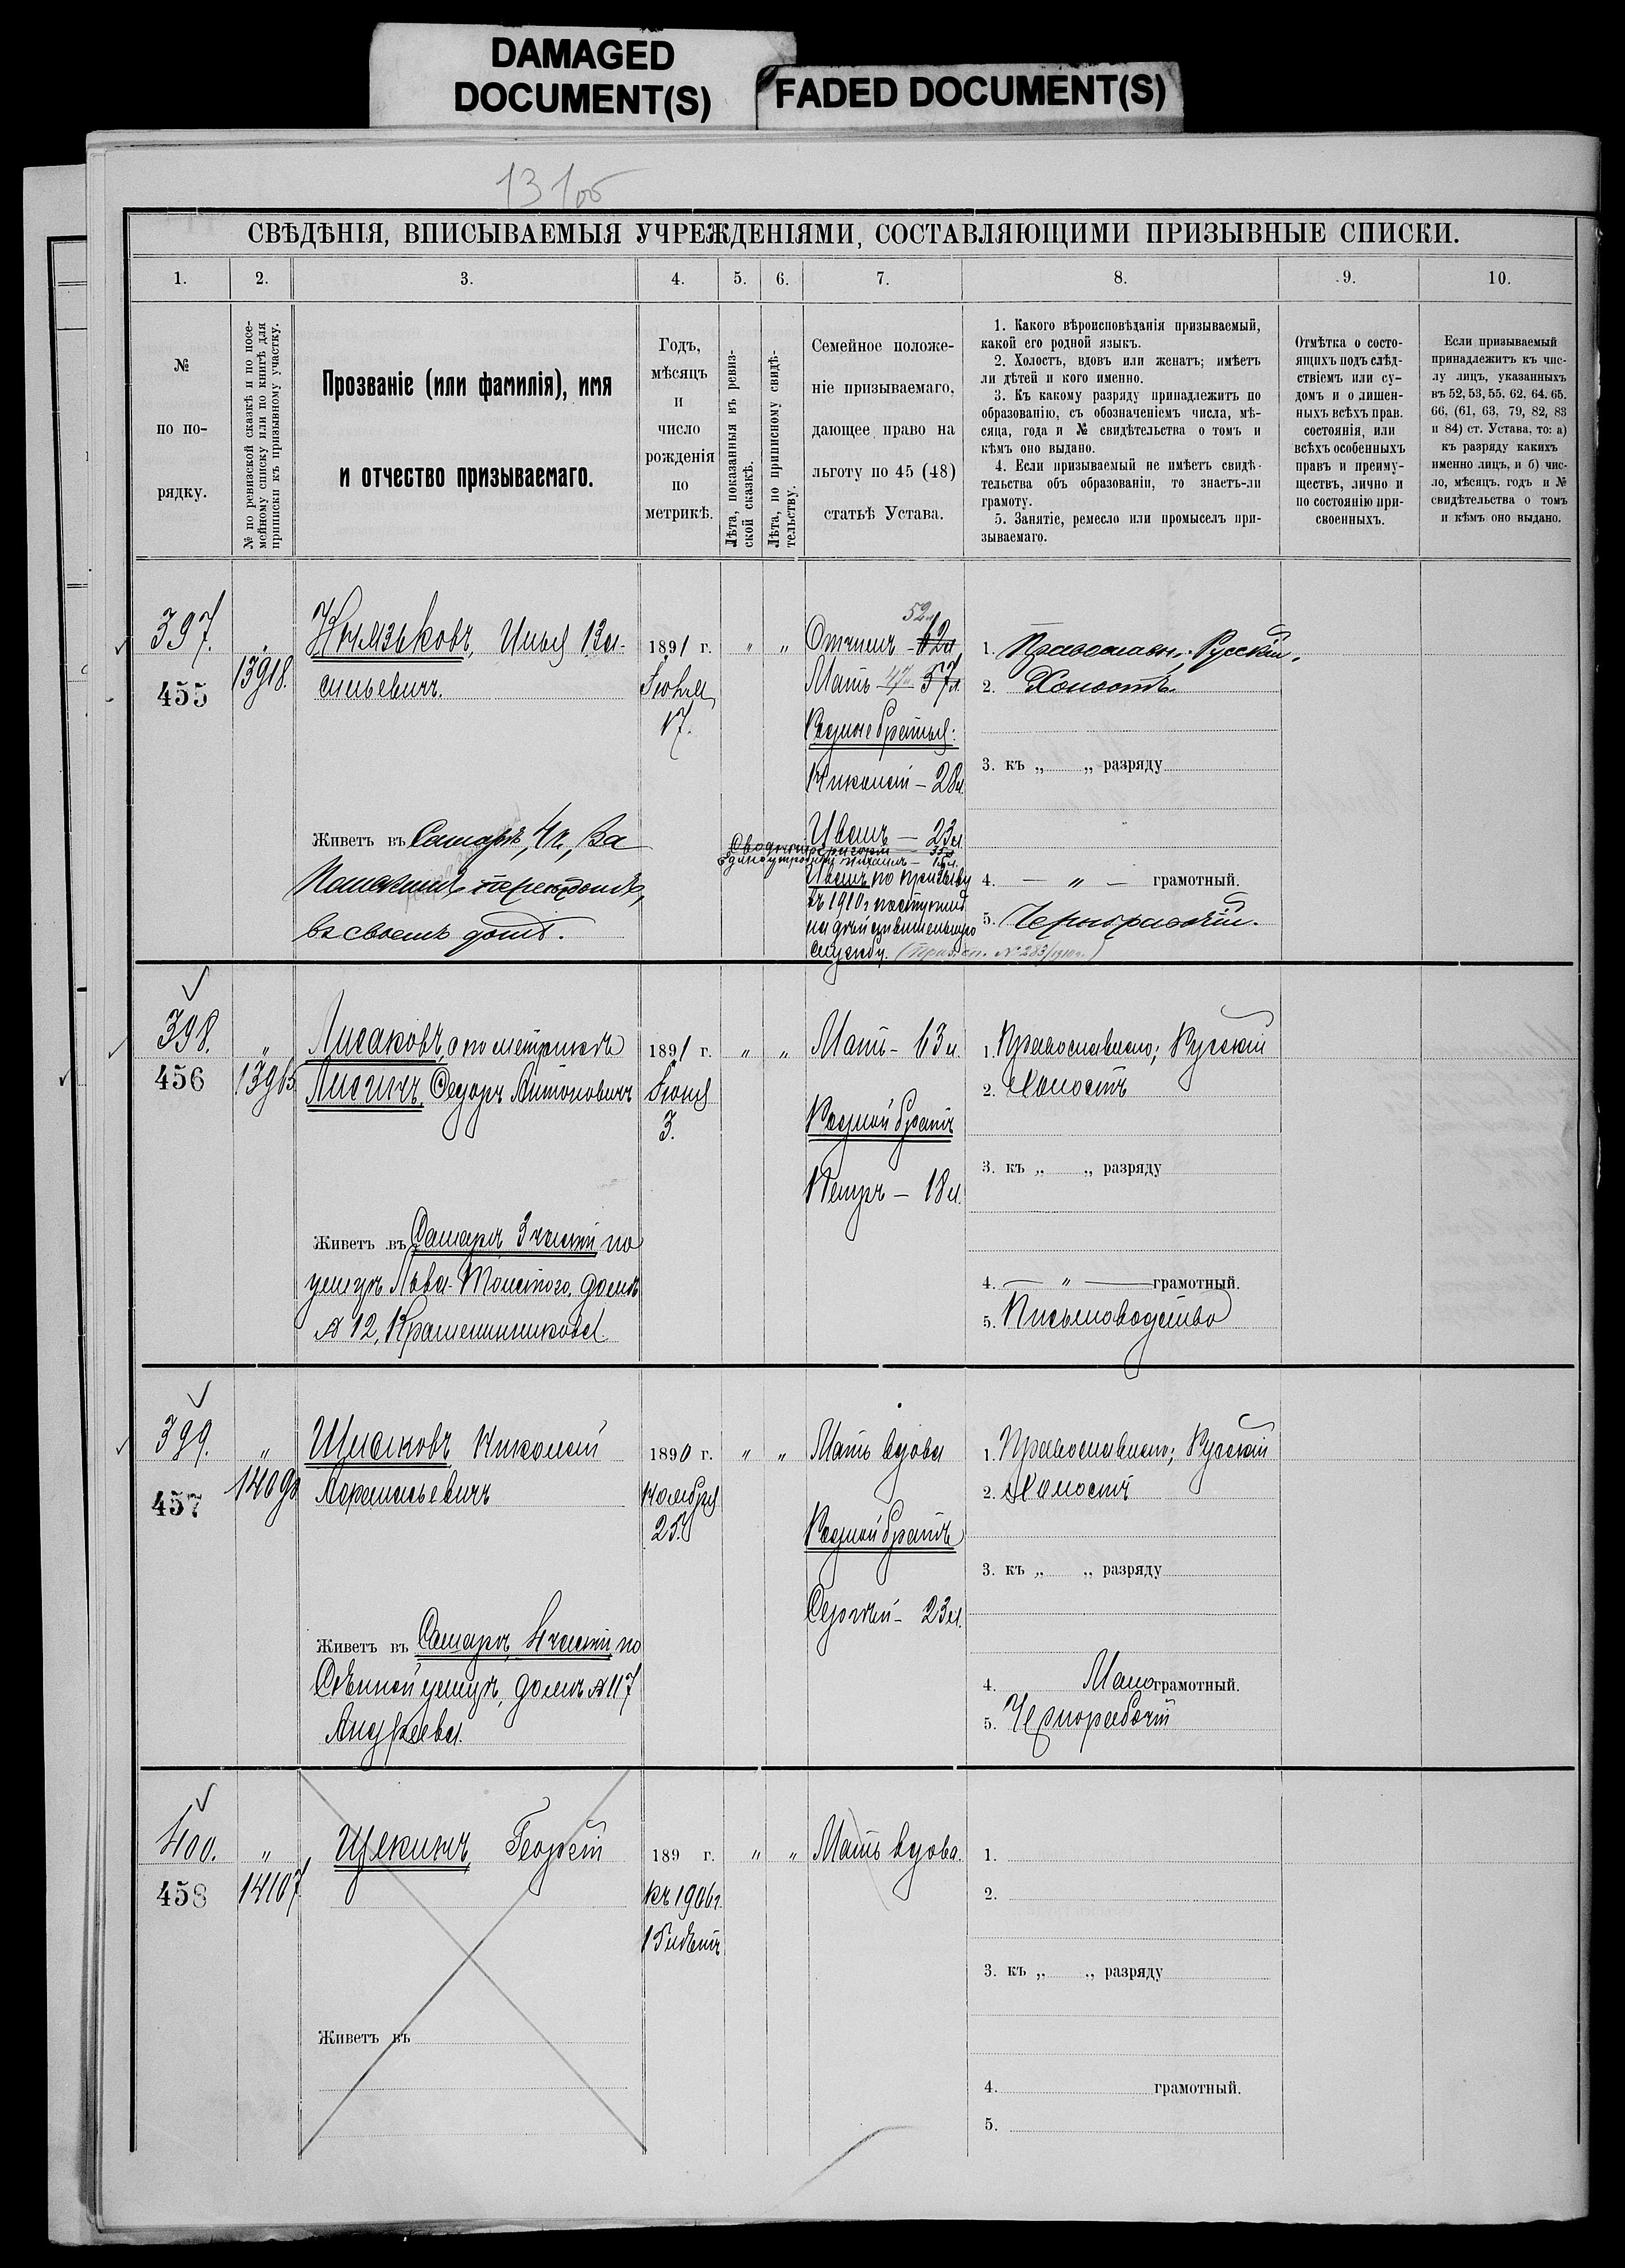 DAMAGED
DOCUMENT(S)
FADED DOCUMENT(S)
131об
СВѢДѢНІЯ, ВПИСЫВАЕМЫЯ УЧРЕЖДЕНІЯМИ, СОСТАВЛЯЮЩИМИ ПРИЗЫВНЫЕ СПИСКИ.
1. 2. 3. 4. 5. 6. 7. 8. 9. 10.
№
по по-
рядку.
№ по ревизской сказкѣ и по посе-
мейному списку или по книгѣ для
приписки къ призывному участку.
Прозваніе (или фамилія), имя
и отчество призываемаго.
Годъ,
мѣсяцъ
и
число
рожденія
по
метрикѣ.
Лѣта, показанныя въ ревиз-
ской сказкѣ.
Лѣта, по приписному свидѣ-
тельству.
Семейное положе-
ніе призываемаго,
дающее право на
льготу по 45 (48)
статьѣ Устава.
1. Какого вѣроисповѣданія призываемый,
какой его родной языкъ.
2. Холостъ, вдовъ или женатъ; имѣетъ
ли дѣтей и кого именно.
3. Къ какому разряду принадлежитъ по
образованію, съ обозначеніемъ числа, мѣ-
сяца, года и № свидѣтельства о томъ и
кѣмъ оно выдано.
4. Если призываемый не имѣетъ свидѣ-
тельства объ образованіи, то знаетъ-ли
грамоту.
5. Занятіе, ремесло или промыселъ при-
зываемаго.
Отмѣтка о состо-
ящихъ подъ слѣд-
ствіемъ или су-
домъ и о лишен-
ныхъ всѣхъ прав.
состоянія, или
всѣхъ особенныхъ
правъ и преиму-
ществъ, лично и
по состоянію при-
своенныхъ.
Если призываемый
принадлежитъ къ чис-
лу лицъ, указанныхъ
въ 52, 53, 55, 62, 64, 65,
66, (61, 63, 79, 82, 83
и 84) ст. Устава, то: а)
къ разряду какихъ
именно лицъ, и б) чис-
ло, мѣсяцъ, годъ и №
свидѣтельства о томъ
и кѣмъ оно выдано.
397.
455
"
13918.
Князьковъ, Илья Ва-
сильевичъ.
Живетъ въ Самарѣ, 4 ч, За
переѣздомъ,
въ своемъ домѣ.
1891 г.
Іюля
17.
" "
52
Отчимъ - 62 л
Мать 47 57 л.
Родные братья:
Николай - 28 л.
Иванъ - 23 л.
Сводный Григорій - 35 л
Единоутробный Михаилъ - 15 л.
Иванъ по призыву
въ 1910 г поступилъ
на дѣйствительную
службу. (Приз. сп. № 283/1910 г.)
1. Православн.; Русскій.
2. Холостъ.
3. къ „ „ разряду
4. — " — грамотный.
5. Чернорабочій.
398.
456
"
13965
Лисаковъ, а по метрикѣ
Лисинъ, Федоръ Антоновичъ
Живетъ въ Самарѣ 3 части по
улицѣ Льва-Толстого, домъ
№ 12, Крашенинникова.
1891 г.
Іюня
3.
" "
Мать - 63 л.
Родной братъ
Петръ - 18 л.
1. Православное; Русскій
2. Холостъ
3. къ „ „ разряду
4. — " — грамотный.
5. Письмоводство
399.
457
"
14098
Шлыковъ Николай
Афанасьевичъ
Живетъ въ Самарѣ, 4 части, по
Сѣнной улицѣ, домъ № 117
Андреева.
1890 г.
Ноября
25.
" "
Мать вдова
Родной братъ
Сергѣй - 23 л.
1. Православное; Русскій
2. Холостъ
3. къ „ „ разряду
4. Малограмотный.
5. Чернорабочій
400.
458
"
14107
Щекинъ, Георгій
Живетъ въ
189 г.
къ 1906 г.
15 лѣтъ
" "
Мать вдова.
1.
2.
3. къ „ „ разряду
4. грамотный.
5.